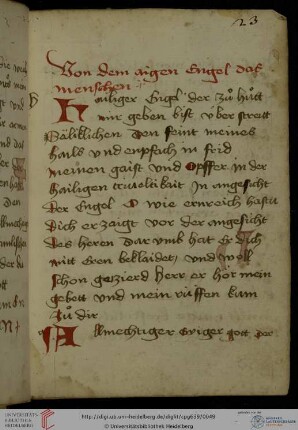 23
Von dem aigen Engel das
menschen
Hailiger Engel der zů hůtt
mir geben bist v̈ber streitt
den feint meines
hails vnd enpfach in frid
meinen gaist vnd opffer in der
hailigen in angesicht
der Engel O wie ernreich hastu
dich erzaigt vor der angesicht
des heren dar vmb hatt Er dich
mitt Eren beklaidet vnd woll
schon geczierd herr er hör mein
gebett vnd mein rüffen kum
zů dir
Almechtiger Ewiger gott der
http://digi.ub.uni-heidelberg.de/diglit/cpg659/0049
© Universitätsbibliothek Heidelberg